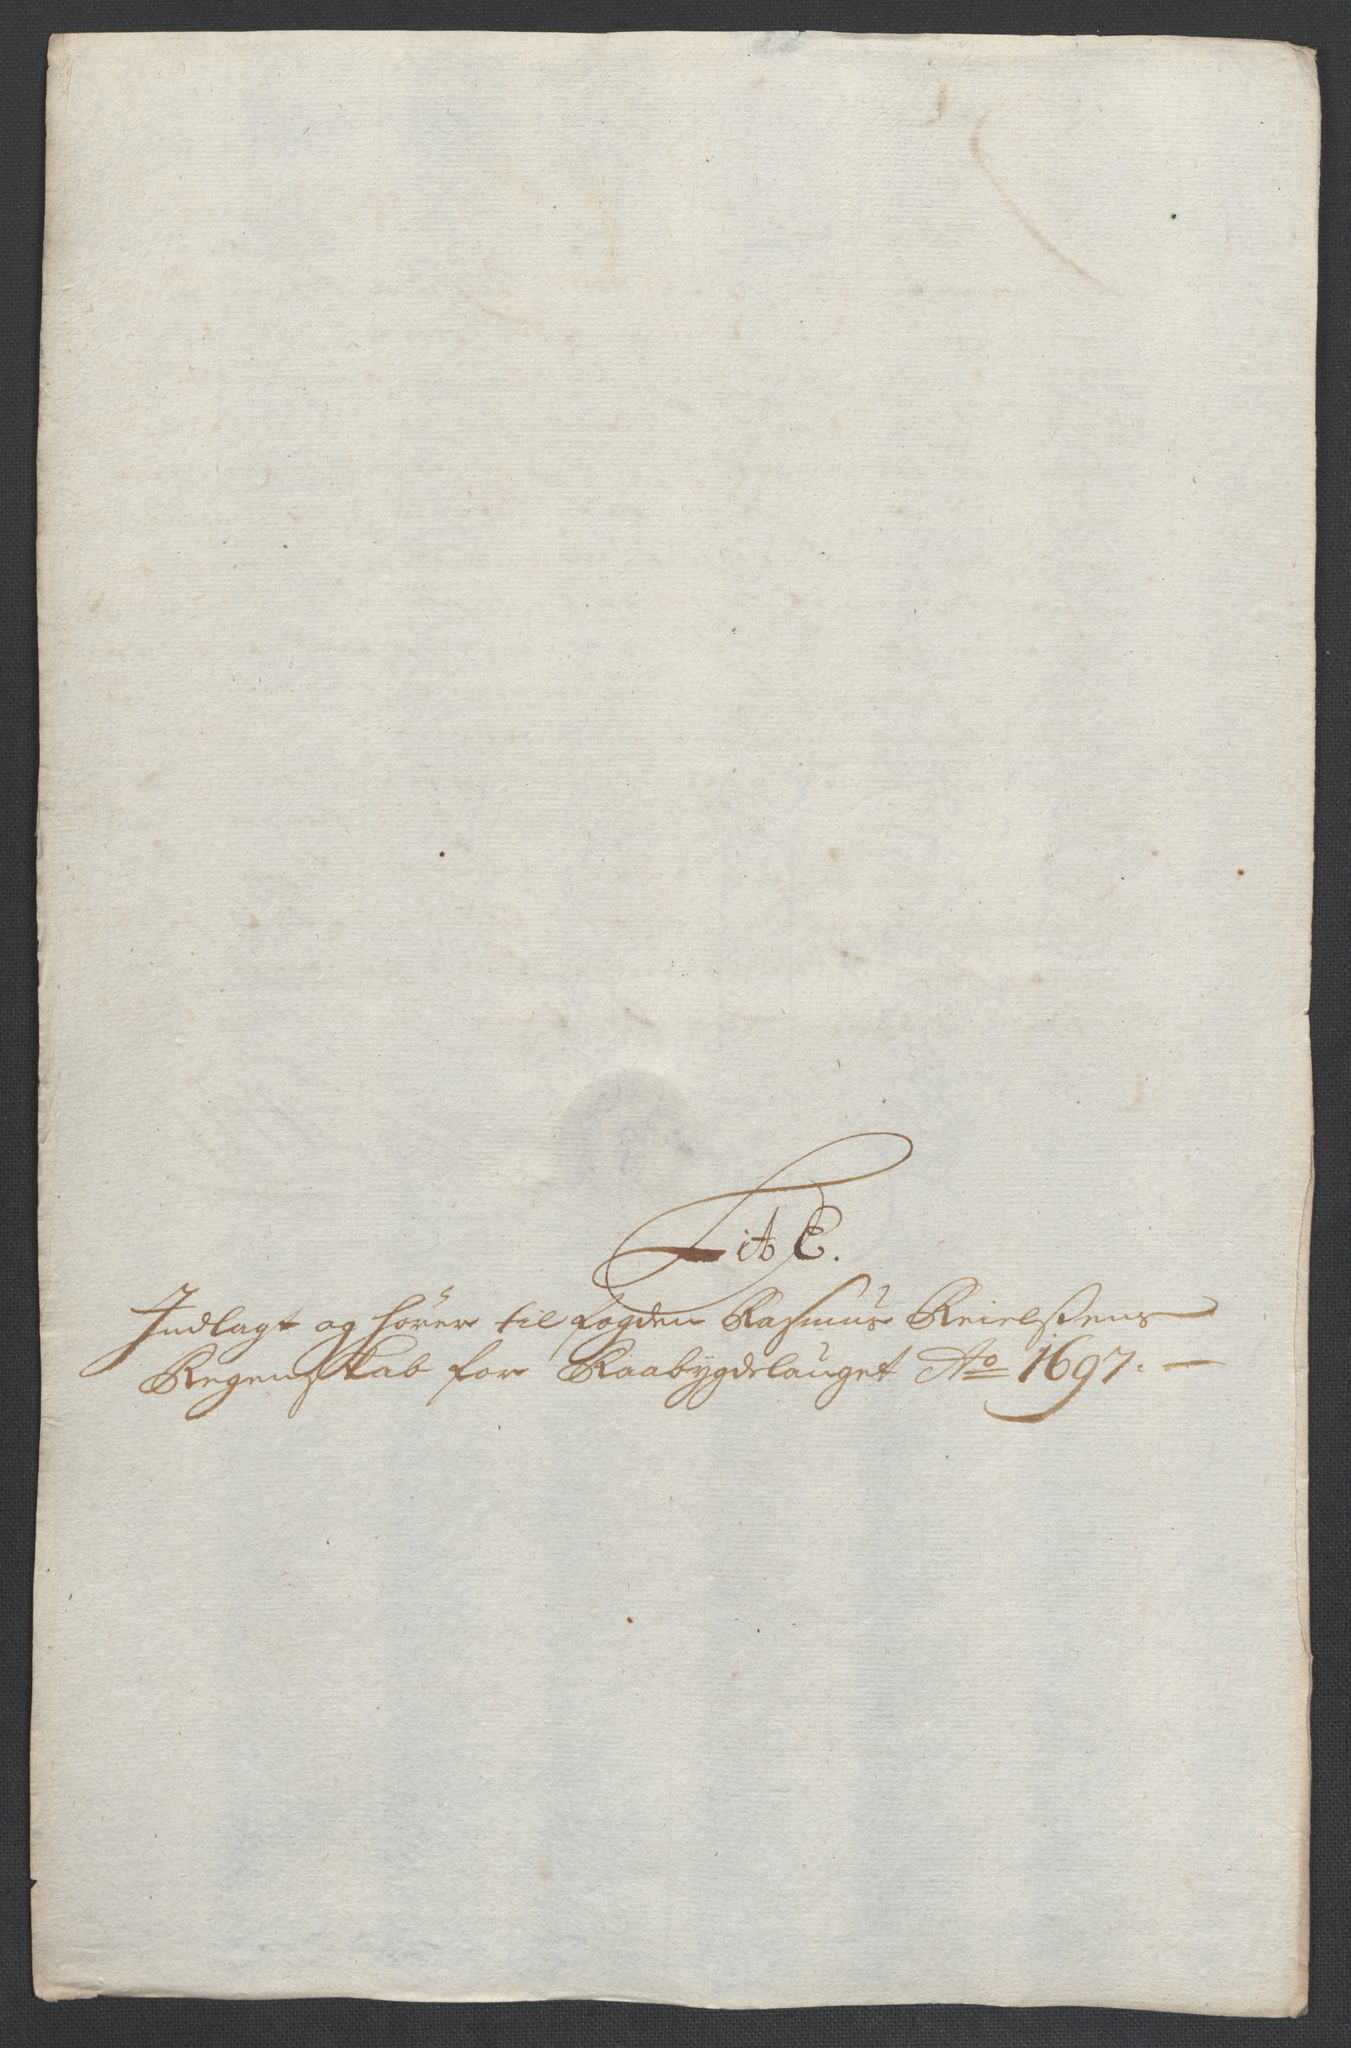 Lit C.
Indlagt og hører til fogden Rasmus Kielssens
Regenskab for Raabygdelauget Ao 1697.